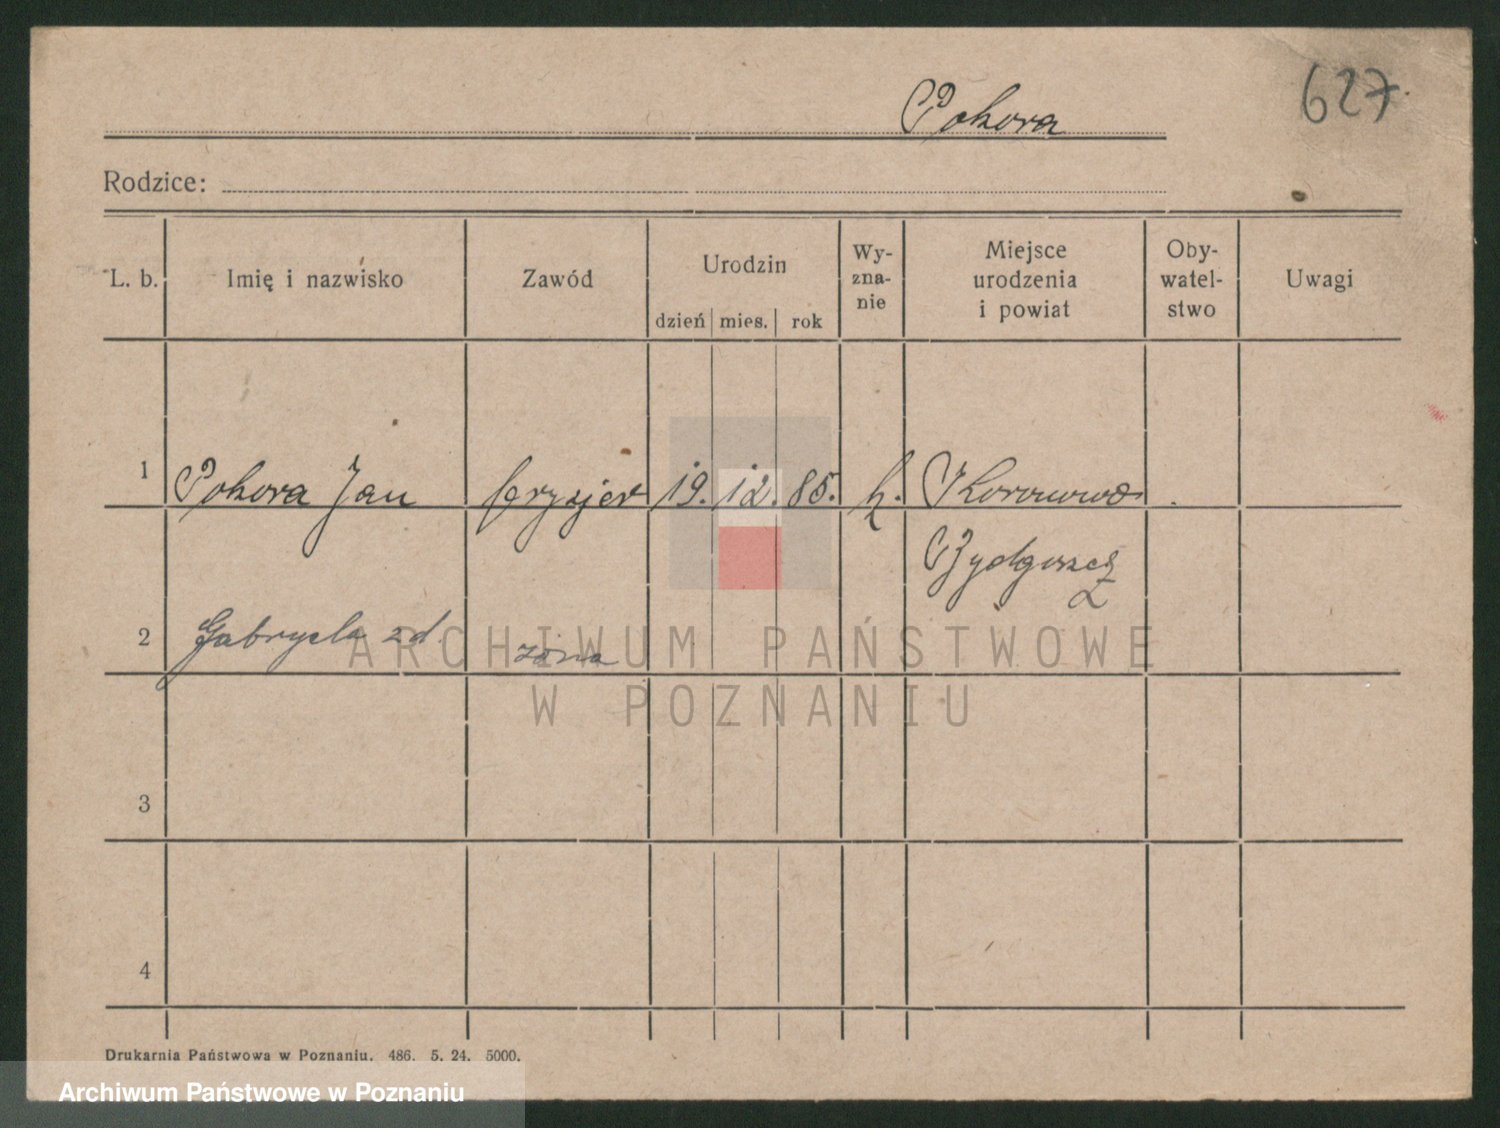 Pokora
627
Rodzice:
L. b.
Imię i nazwisko
Zawód
Urodzin
dzień mies. rok
Wy-
zna-
nie
Miejsce
urodzenia
i powiat
Oby-
watel-
stwo
Uwagi
1 Pokora Jan fryzjer 19. 12. 85. k. Koronowo
Bydgoszcz
2 Gabryela zd. żona
3
4
ARCHIWUM PAŃSTWOWE
W POZNANIU
Drukarnia Państwowa w Poznaniu. 486. 5. 24. 5000.
Archiwum Państwowe w Poznaniu